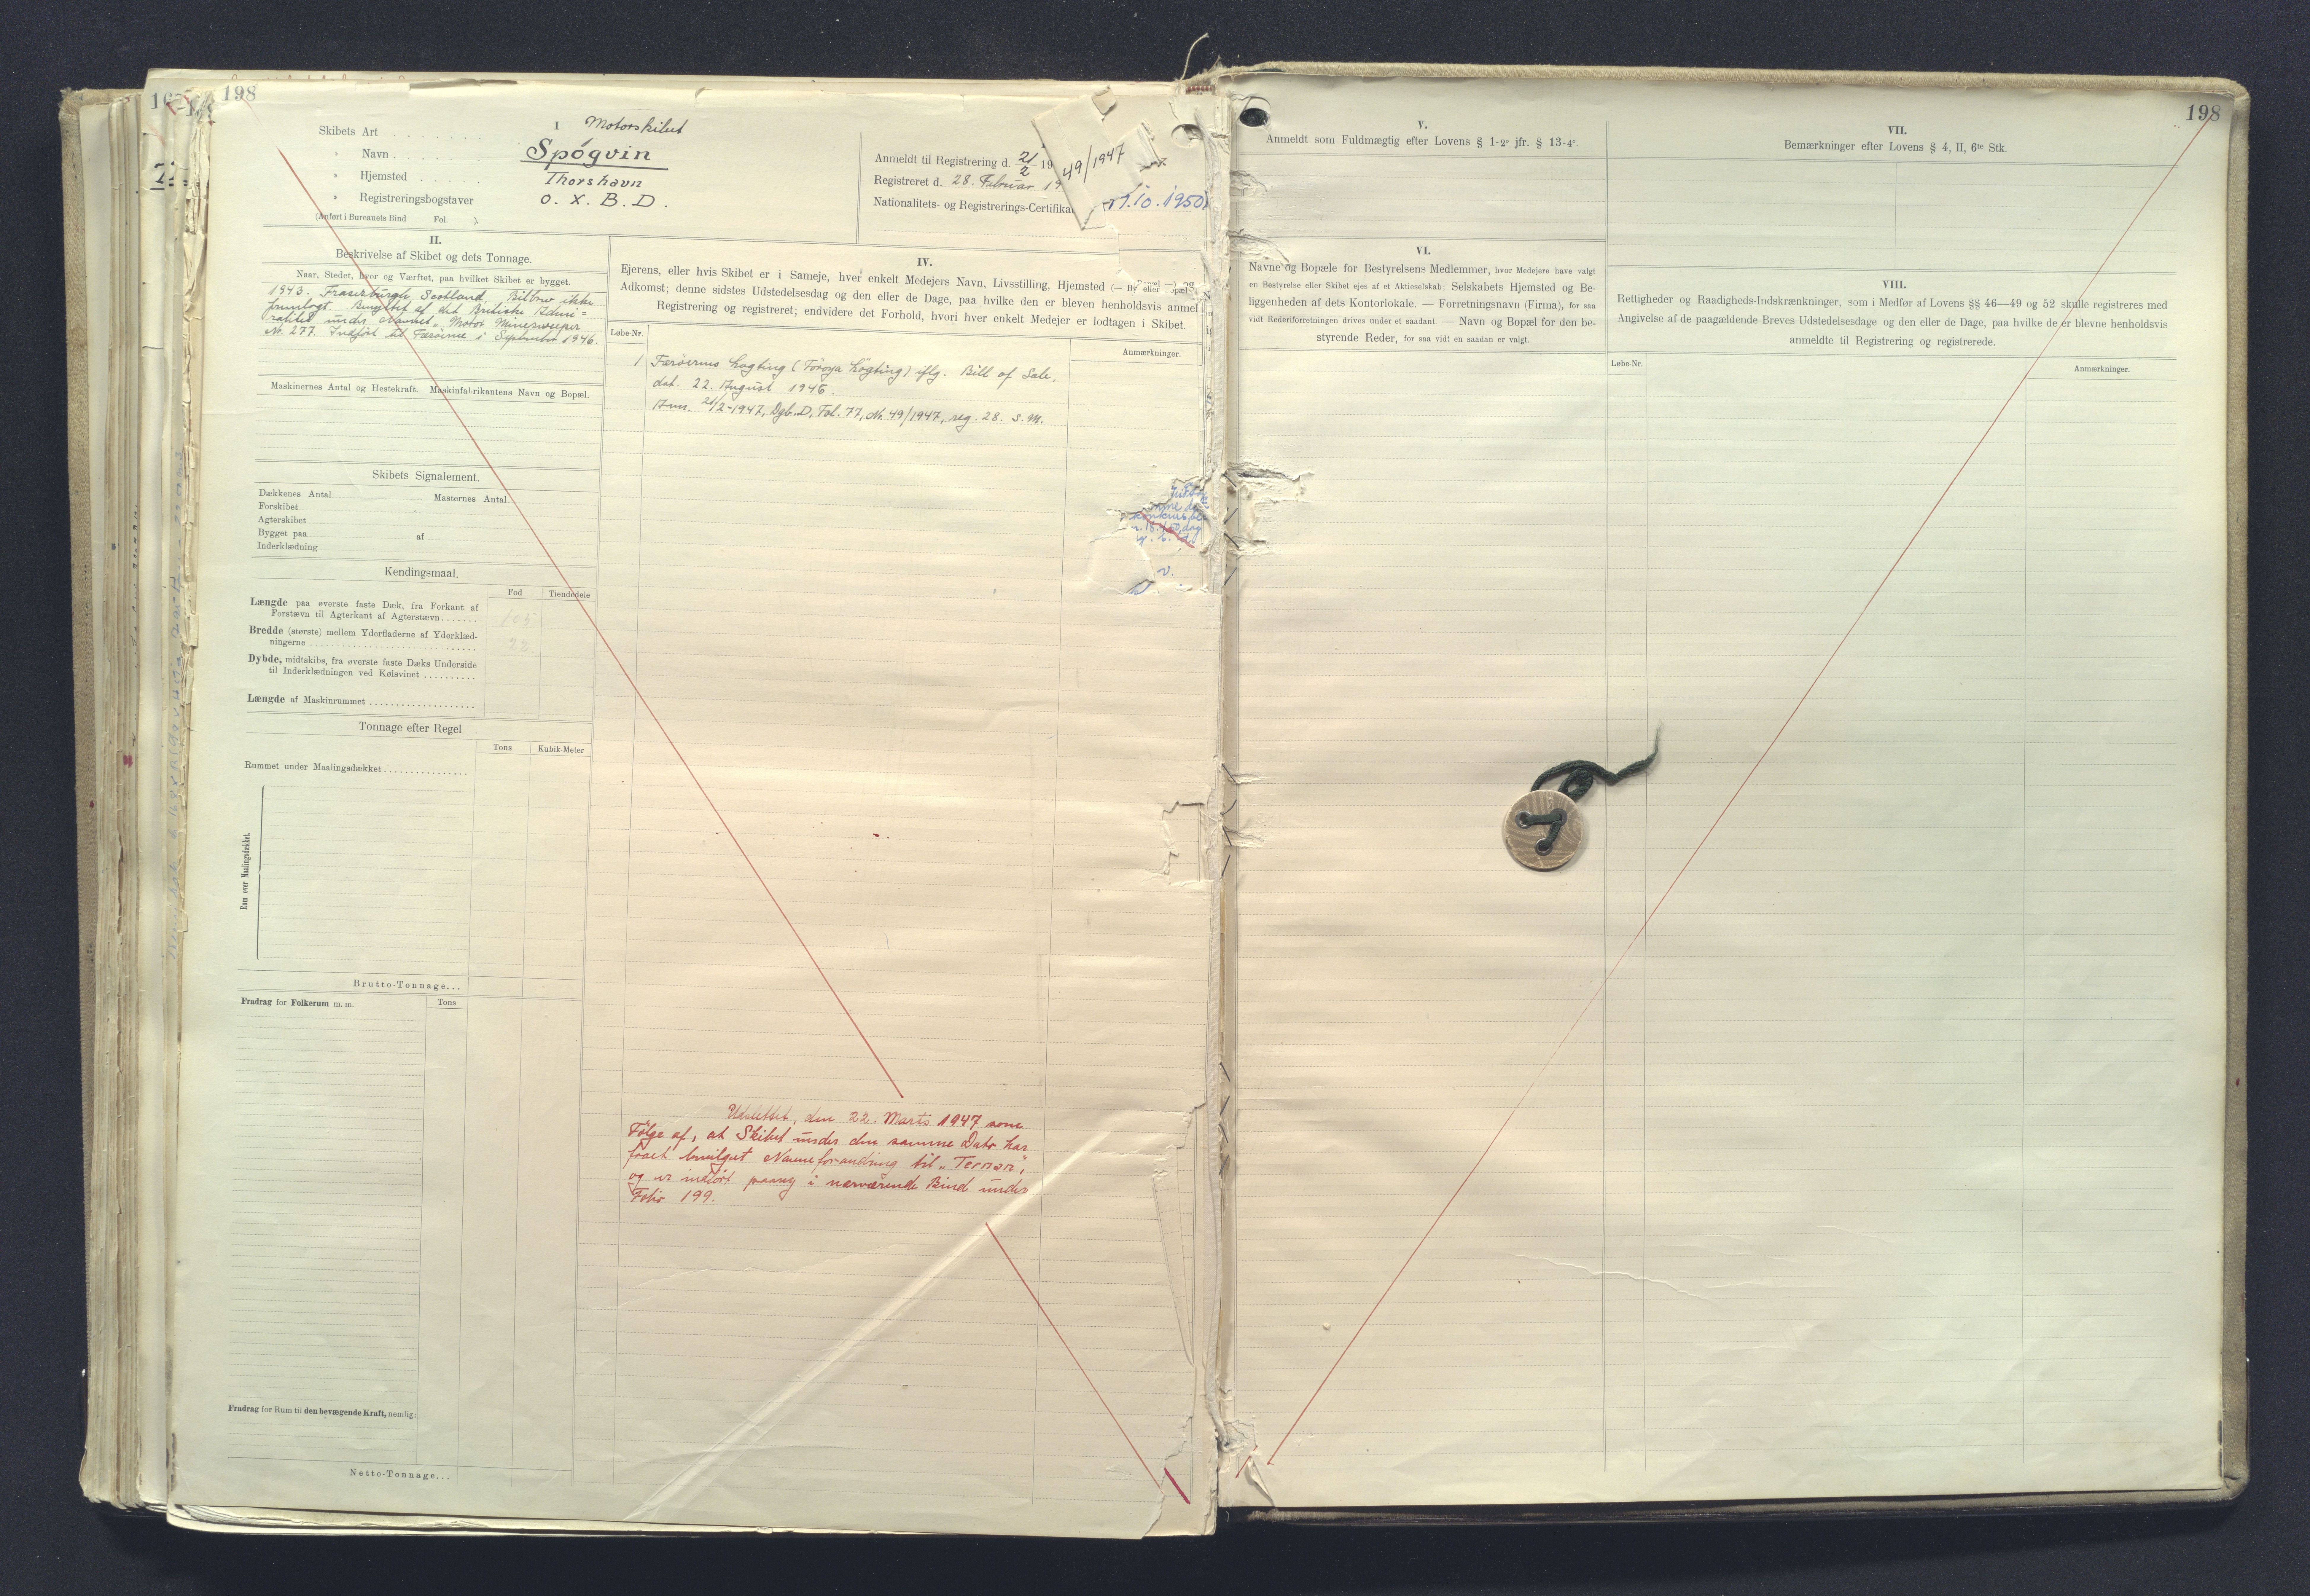 198
I
Skibets Art . . . . . . . Motorskibet
" Navn . . . . . . Spógvin
" Hjemsted . . . . . Thorshavn
" Registreringsbogstaver O. X. B. D.
(Anført i Bureauets Bind Fol. ).
Anmeldt til Registrering d. 21/2 19
49/1947
Registreret d. 28. Februar 19
Nationalitets- og Registrerings-Certifika
10. 1950
II.
Beskrivelse af Skibet og dets Tonnage.
Naar, Stedet, hvor og Værftet, paa hvilket Skibet er bygget.
1943. Fraserburgh, Scotland, Bilbrev ikke
fremlagt. Bygget af det Britiske Admi=
ralitet under Navnet "Motor Minesweeper
Nr. 277. Indført til Færøerne i September 1946.
Maskinernes Antal og Hestekraft. Maskinfabrikantens Navn og Bopæl.
Skibets Signalement.
Dækkenes Antal Masternes Antal
Forskibet
Agterskibet
Bygget paa af
Inderklædning
Kendingsmaal.
Fod Tiendedele
Længde paa øverste faste Dæk, fra Forkant af
Forstævn til Agterkant af Agterstævn . . . . . . . 105
Bredde (største) mellem Yderfladerne af Yderklæd-
ningerne . . . . . . . . . . 22
Dybde, midtskibs, fra øverste faste Dæks Underside
til Inderklædningen ved Kølsvinet . . . . . . . . . .
Længde af Maskinrummet . . . . . . . . . .
Tonnage efter Regel
Tons Kubik-Meter
Rummet under Maalingsdækket . . . . . . . . . .
Rum over Maalingsdækket.
Brutto-Tonnage...
Fradrag for Folkerum m. m. Tons
Fradrag for Rum til den bevægende Kraft, nemlig:
Netto-Tonnage...
IV.
Ejerens, eller hvis Skibet er i Sameje, hver enkelt Medejers Navn, Livsstilling, Hjemsted (— By eller
Adkomst; denne sidstes Udstedelsesdag og den eller de Dage, paa hvilke den er bleven henholdsvis anmel
Registrering og registreret; endvidere det Forhold, hvori hver enkelt Medejer er lodtagen i Skibet.
Løbe-Nr.
Anmærkninger.
1 Færøernes Lagting (Föroya Lögting) iflg. Bill of Sale,
dat. 22. August 1946.
Anm. 21/2-1947, Dgb. D, Fol. 77, Nr. 49/1947, reg. 28. s. M.
Udslettet, den 22. Marts 1947 som
Følge af, at Skibet under den samme Dato har
faaet bevilget Navneforandring til "Ternan",
og er indført paany i nærværende Bind under
Folio 199.
V.
Anmeldt som Fuldmægtig efter Lovens § 1-2° jfr. § 13-4°.
VI.
Navne og Bopæle for Bestyrelsens Medlemmer, hvor Medejere have valgt
en Bestyrelse eller Skibet ejes af et Aktieselskab; Selskabets Hjemsted og Be-
liggenheden af dets Kontorlokale. — Forretningsnavn (Firma), for saa
vidt Rederiforretningen drives under et saadant. — Navn og Bopæl for den be-
styrende Reder, for saa vidt en saadan er valgt.
198
VII.
Bemærkninger efter Lovens § 4, II, 6te Stk.
VIII.
Rettigheder og Raadigheds-Indskrænkninger, som i Medfør af Lovens §§ 46—49 og 52 skulle registreres med
Angivelse af de paagældende Breves Udstedelsesdage og den eller de Dage, paa hvilke de er blevne henholdsvis
anmeldte til Registrering og registrerede.
Løbe-Nr.
Anmærkninger.